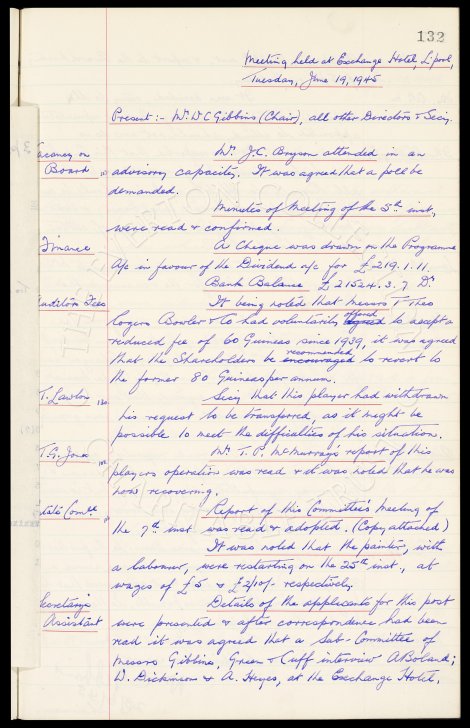 132
Meeting held at Exchange Hotel, L'pool,
Tuesday, June 19, 1945
Present :- Mr. W C Gibbins (Chair), all other Directors & Secy.
Vacancy on Board
Mr. J.C. Bryson attended in an
advisory capacity. It was agreed that a poll be
demanded.
Minutes of Meeting of the 5th inst,
were read & confirmed.
Finance
A Cheque was drawn on the Programme
A/c in favour of the Dividend a/c for £219. 1. 11.
Bank Balance £21524. 3. 7 Dr
Auditors Fees
It being noted that Messrs T Theo
Rogers Bowler & Co had voluntarily agreed offered to accept a
reduced fee of 60 Guineas since 1939, it was agreed
that the Shareholders be encouraged recommended to revert to
the former 80 Guineas per annum.
T. Lawton
Secy that this player had withdrawn
his request to be transferred, as it might be
possible to meet the difficulties of his situation.
T.G. Jones
Mr. T. P. McMurray's report of this
players operation was read & it was noted that he was
now recovering.
Comte
Report of this Committee's Meeting of
the 7th inst was read & adopted. (Copy attached)
It was noted that the painter, with
a labourer, were restarting on the 25th inst, at
wages of £5 & £2/10/- respectively.
Secretary's Assistant
Details of the applicants for this post
were presented & after correspondence had been
read it was agreed that a Sub-Committee of
Messrs Gibbins, Green & Cuff interview A Boland;
W. Dickinson & A. Heyes, at the Exchange Hotel,